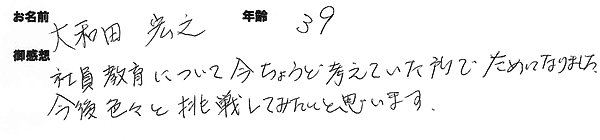 お名前 大和田 宏之 年齢 39
御感想
社員教育について今ちょうど考えていた所でためになりました
今後色々と挑戦してみたいと思います.